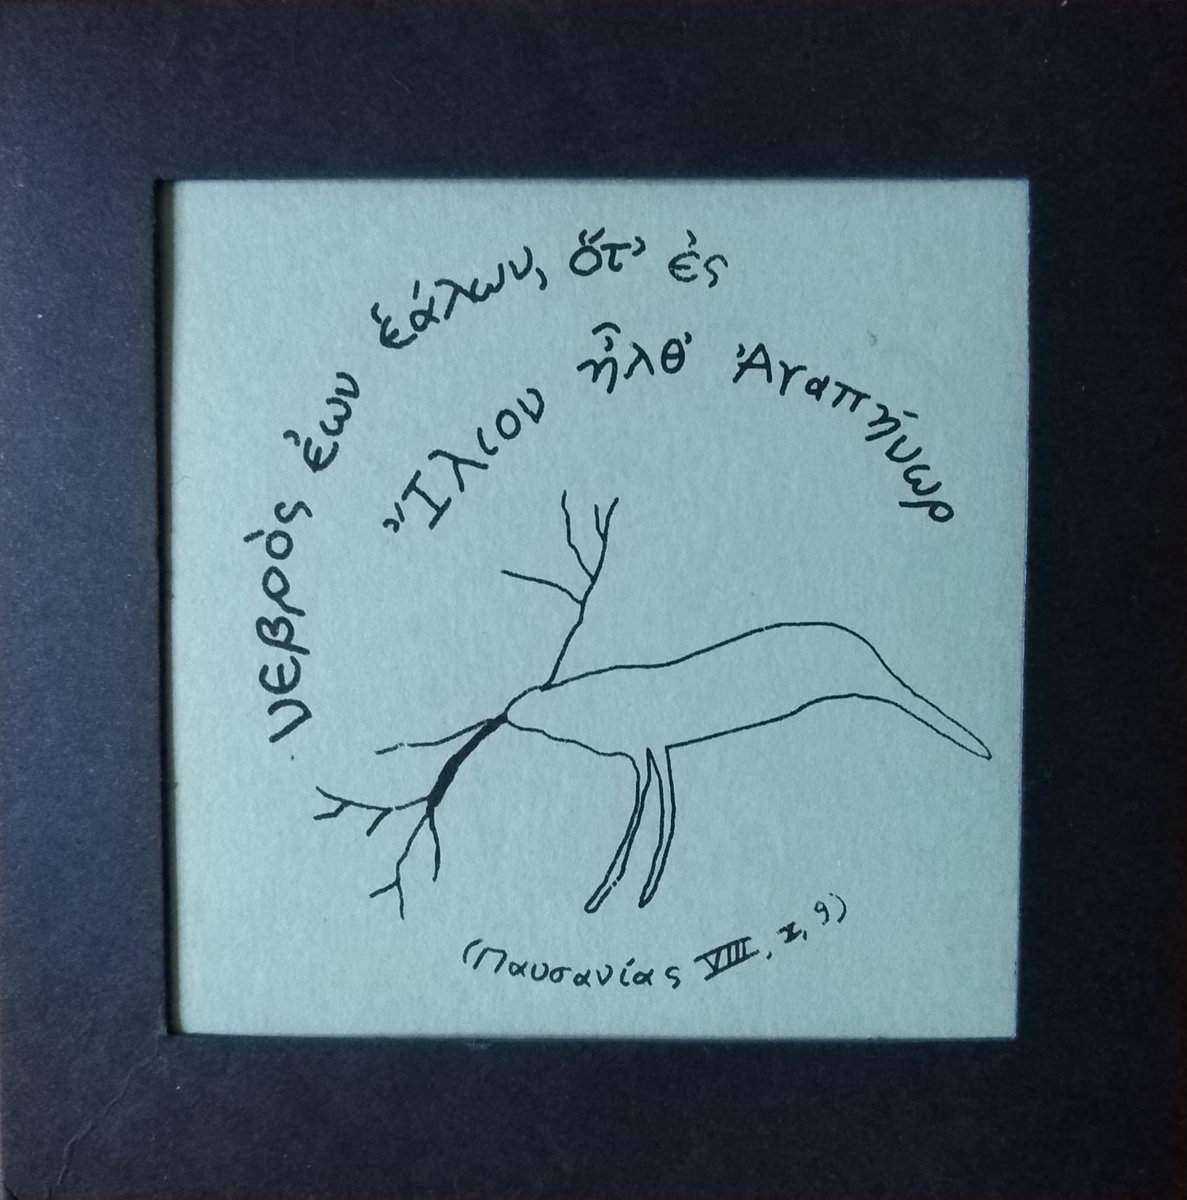 νεβρὸς ἐὼν ἑάλων, ὅτ' ἐς
Ἴλιον ἦλθ' Ἀγαπήνωρ
(Παυσανίας VIII, x, 9)